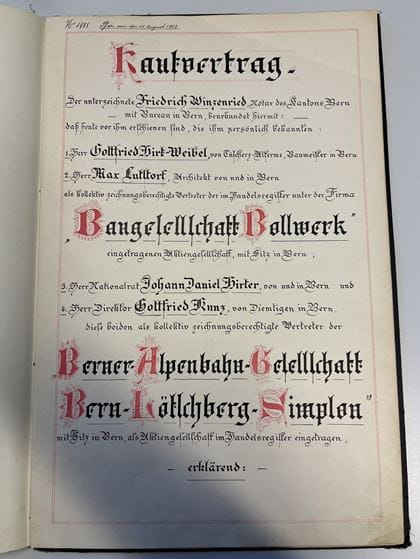 No 1988
Bern, den 11. August 1913.
Kaufvertrag.
Der unterzeichnete Friedrich Winzenried, Notar des Kantons Bern
— mit Bureau in Bern, beurkundet hiermit: —
daß heute vor ihm erschienen sind, die ihm persönlich bekannten:
1. Herr Gottfried Hirt-Weibel, von Tüscherz-Alfermé, Baumeister in Bern
2. Herr Max Lutstorf, Architekt von und in Bern
als kollektiv zeichnungsberechtigte Vertreter der im Handelsregister unter der Firma
„Baugesellschaft Bollwerk"
eingetragenen Aktiengesellschaft, mit Sitz in Bern;
3. Herr Nationalrat Johann Daniel Hirter, von und in Bern und
4. Herr Direktor Gottfried Kunz, von Diemtigen in Bern,
diese beiden als kollektiv zeichnungsberechtigte Vertreter der
„Berner-Alpenbahn-Gesellschaft
Bern-Lötschberg-Simplon"
mit Sitz in Bern, als Aktiengesellschaft im Handelsregister eingetragen,
— erklärend: —